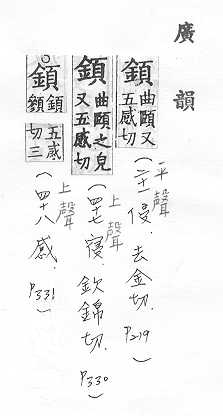 廣韻
顉 曲頤又
五感切
(平聲 二十一侵.去金切.P219)
顉 曲頤之皃
又五感切
(上聲 四七寑.欽錦切.P330)
顉 顉顉 五感
切三
(上聲 四十八感.P331)